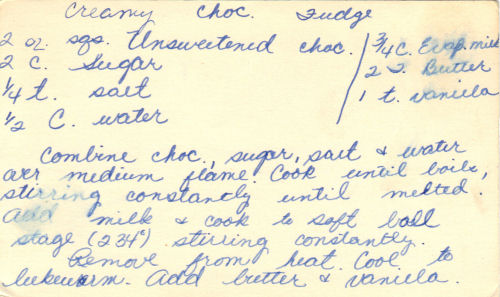 Creamy Choc. Fudge
2 oz. sqs. Unsweetened choc. / 3/4 C. Evap. milk
2 C. Sugar / 2 T. Butter
1/4 t. salt / 1 t. vanilla
1/2 C. water
Combine choc., sugar, salt & water
over medium flame. Cook until boils,
stirring constantly until melted.
Add milk & cook to soft ball
stage (234°) stirring constantly.
Remove from heat. Cool to
lukewarm. Add butter & vanilla.